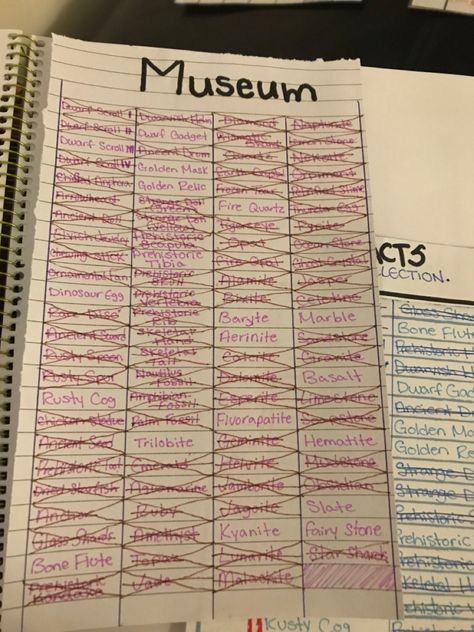 Museum
Dwarf Scroll I
Dwarf Scroll II
Dwarf Scroll III
Dwarf Scroll IV
Chipped Amphora
Arrowhead
Ancient Doll
Elvish Jewelry
Chewing Stick
Ornamental Fan
Dinosaur Egg
Rare Disc
Ancient Sword
Rusty Spoon
Rusty Spur
Rusty Cog
Chicken Statue
Ancient Seed
Prehistoric Tool
Dried Starfish
Anchor
Glass Shards
Bone Flute
Prehistoric
Handaxe
Dwarvish Helm
Dwarf Gadget
Ancient Drum
Golden Mask
Golden Relic
Strange Doll
Green
Strange Doll
Yellow
Prehistoric
Scapula
Prehistoric
Tibia
Prehistoric
Skull
Prehistoric
Rib
Skeletal
Hand
Skeletal
Tail
Nautilus
Fossil
Amphibian
Fossil
Palm Fossil
Trilobite
Emerald
Aquamarine
Ruby
Amethyst
Topaz
Jade
Diamond
Prismatic
Shard
Quartz
Earth Crystal
Frozen Tear
Fire Quartz
Tigerseye
Opal
Fire Opal
Alamite
Bixite
Baryte
Aerinite
Calcite
Dolomite
Esperite
Fluorapatite
Geminite
Helvite
Jamborite
Jagoite
Kyanite
Lunarite
Malachite
Neptunite
Lemon Stone
Nekoite
Orpiment
Petrified Slime
Thunder Egg
Pyrite
Ocean Stone
Ghost Crystal
Jasper
Celestine
Marble
Sandstone
Granite
Basalt
Limestone
Soapstone
Hematite
Mudstone
Obsidian
Slate
Fairy Stone
Star Shards
ACTS
LLECTION.
Glass Sha
Bone Flute
Prehistoric H
Dwarvish H
Dwarf Gad
Ancient D
Golden Ma
Golden Re
Strange D
Strange
Prehistoric
Prehistoric
Prehistoric
Skeletal H
Prehistoric
Rusty Cog